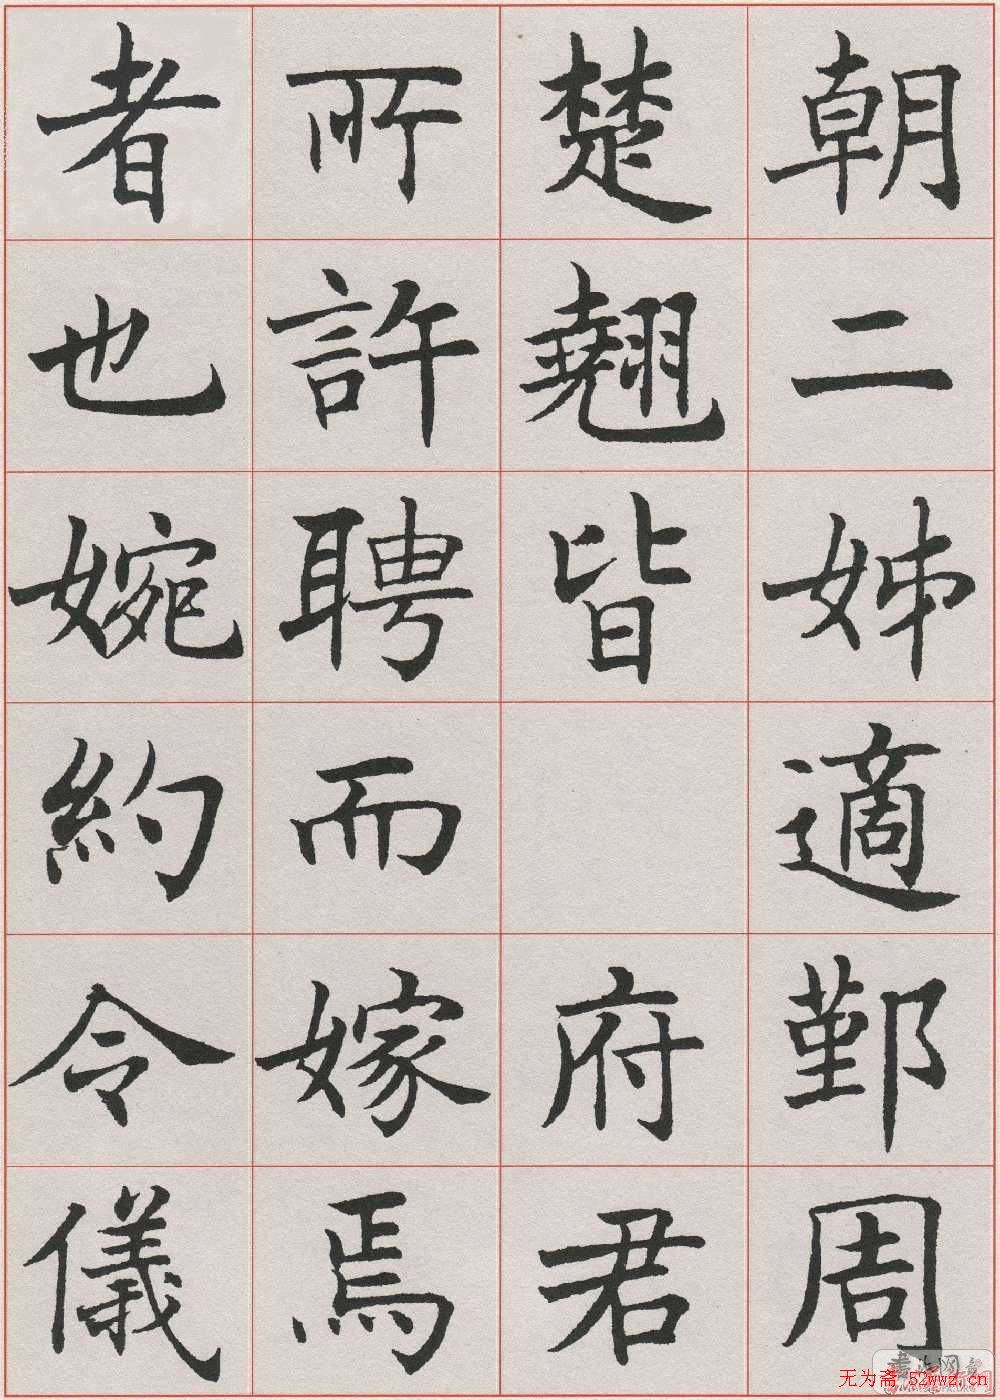 朝二姊適鄞周
楚翹皆府君
所許聘而嫁焉
者也婉約令儀
无为斋 52wwz.cn